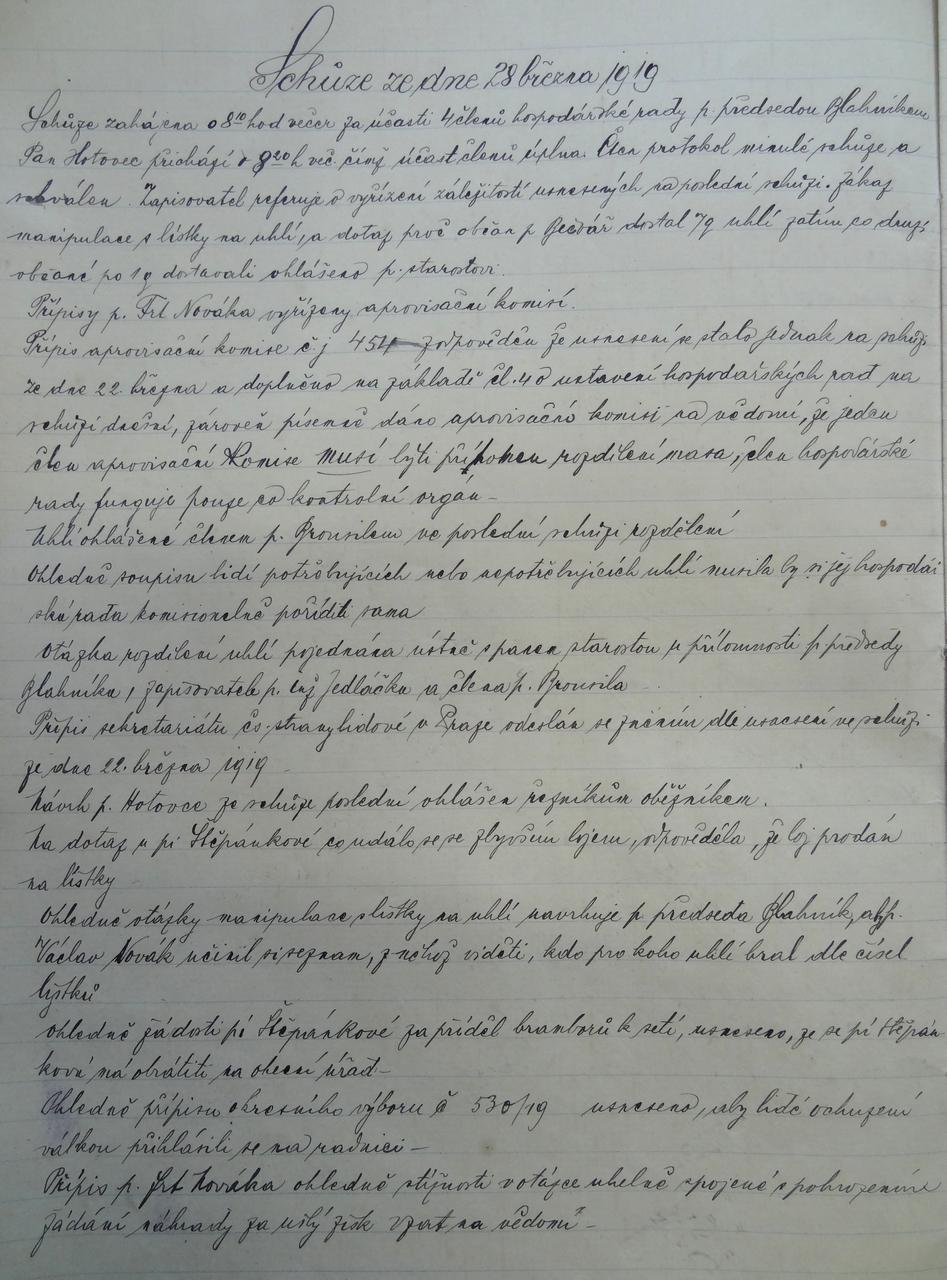 Schůze ze dne 28 března 1919
Schůze zahájena o 8¹⁰ hod večer za účasti 4 členů hospodářské rady p předsedou Blahníkem
Pan Hotovec přichází o 8²⁰ h več. čímž účast členů úplna. Čten protokol minulé schůze a
schválen. Zapisovatel referuje o vyřízení záležitostí usnesených na poslední schůzi. Zákaz
manipulace s lístky na uhlí, a dotaz proč občan p dostal 7q uhlí zatím co druzí
občané po 1q dostavali ohlášeno p. starostovi.
Přípisy p. Frt Nováka vyřízeny aprovisační komisí.
Přípis aprovisační komise č.j 454 zodpověděn že usnesení se stalo jednak na schůzi
ze dne 22. března a doplněno na základě čl. 4 o ustavení hospodářských rad na
schůzi dnešní, zároveň písemně dáno aprovisační komisi na vědomí, že jeden
člen aprovisační Komise musí býti při rozdílení masa, člen hospodářské
rady funguje pouze co kontrolní orgán –
Uhlí ohlášené členem p. Brousilem ve poslední schůzi rozdělení
Ohledně soupisu lidí potřebujících nebo nepotřebujících uhlí musila by si jej hospodář
ská rada komisionelně poříditi sama
Otázka rozdílení uhlí pojednána ústně s panem starostou u přítomnosti p předsedy
Blahníka, zapisovatele p. inž Jedláčka a člena p. Brousila
Přípis sekretariátu čs. strany lidové v Praze odeslán se zněním dle usnesení ve schůzi
ze dne 22. března 1919
Návrh p. Hotovce ze schůze poslední ohlášen řezníkům oběžníkem.
Na dotaz u pí Štěpánkové co událo se se zbyvším lojem, odpověděla, že loj prodán
na lístky
Ohledně otázky manipulace s lístky na uhlí navrhuje p předseda Blahník, aby p.
Václav Novák učinil si seznam, z něhož viděti, kdo pro koho uhlí bral dle čísel
lístků
Ohledně žádosti pí Štěpánkové za příděl bramborů k setí, usneseno, že se pí Štěpán-
ková má obrátiti na obecní úřad –
Ohledně přípisu okresního výboru č 530/19 usneseno, aby lidé ochuzení
válkou přihlásili se na radnici –
Přípis p. Frt Nováka ohledně stížnosti v otázce uhelné spojené s pohrozením
žádání náhrady za ušlý zisk vzat na vědomí –